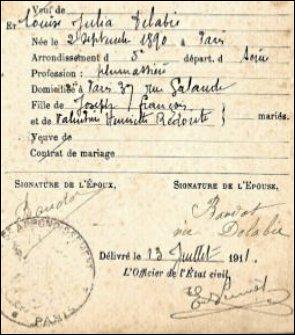 Veuf de
Et Louise Julia Delabie
Née le 2 Septembre 1890 à Paris
Arrondissement d 5e départ. d Seine
Profession : plumassière
Domiciliée à Paris 37 rue Galande
Fille de Joseph François
et de Valentine Henriette Redouté } mariés.
Veuve de
Contrat de mariage
SIGNATURE DE L'ÉPOUX, SIGNATURE DE L'ÉPOUSE,
née Delabie
Délivré le 13 Juillet 1911.
L'Officier de l'État civil,
ARRONDISSEMENT
PARIS